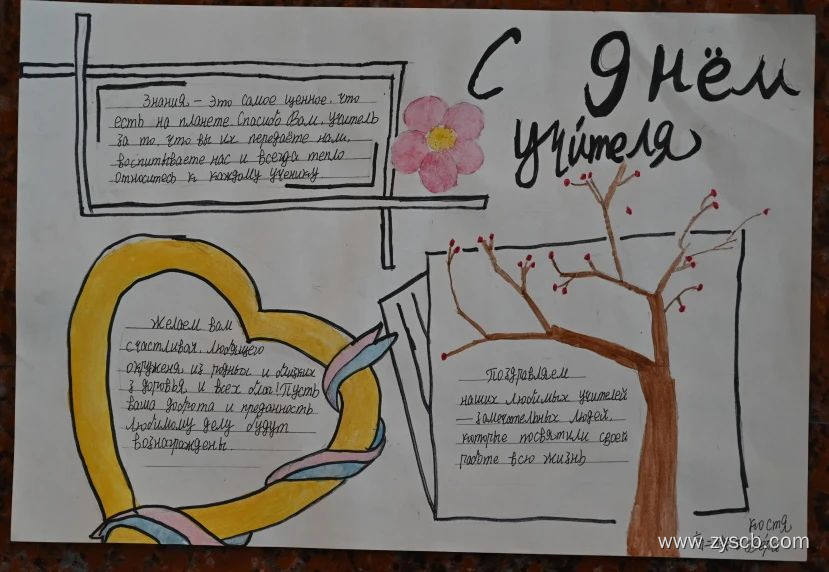 С днём
учителя
Знания – это самое ценное, что
есть на планете Спасибо Вам, учитель
за то, что вы их передаёте нам,
воспитываете нас и всегда тепло
относитесь к каждому ученику
Желаем вам
счастливая, любящего
окружения из родных и близких
здоровья, и всех благ! Пусть
ваша доброта и преданность
любимому делу будут
вознаграждены.
Поздравляем
наших любимых учителей
— замечательных людей,
которые посвятили своей
работе всю жизнь
Костя
www.zyscb.com